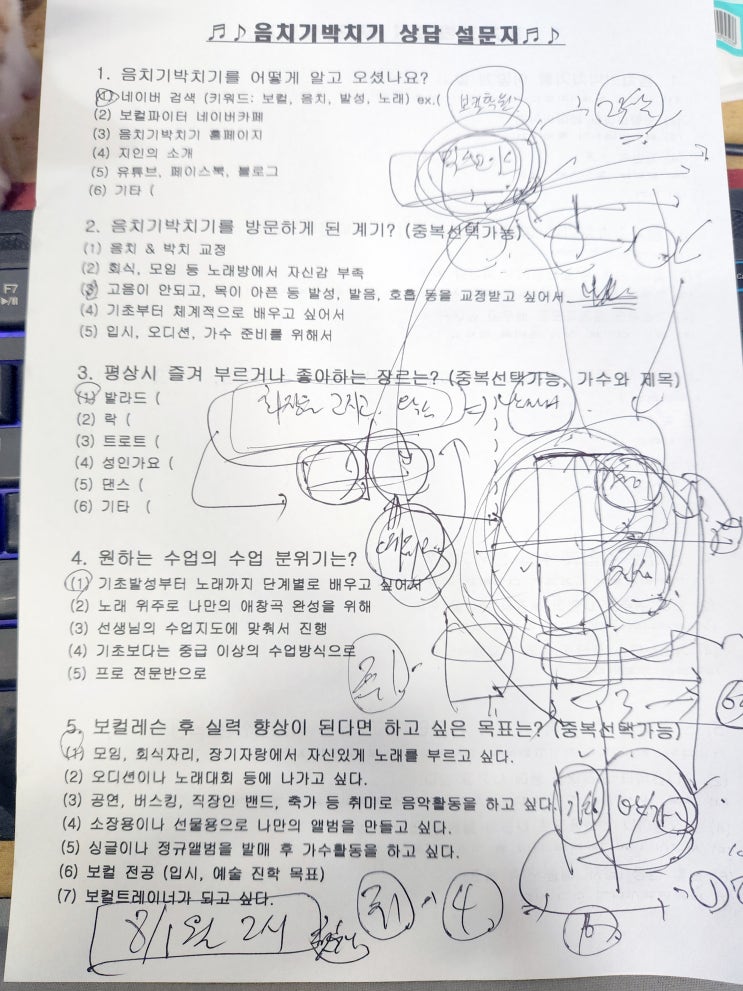 ♬♪음치기박치기 상담 설문지♬♪
1. 음치기박치기를 어떻게 알고 오셨나요?
(1) 네이버 검색 (키워드: 보컬, 음치, 발성, 노래) ex.( 보컬학원
(2) 보컬파이터 네이버카페
(3) 음치기박치기 홈페이지
(4) 지인의 소개
(5) 유튜브, 페이스북, 블로그
(6) 기타 (
2. 음치기박치기를 방문하게 된 계기? (중복선택가능)
(1) 음치 & 박치 교정
(2) 회식, 모임 등 노래방에서 자신감 부족
(3) 고음이 안되고, 목이 아픈 등 발성, 발음, 호흡 등을 교정받고 싶어서
(4) 기초부터 체계적으로 배우고 싶어서
(5) 입시, 오디션, 가수 준비를 위해서
3. 평상시 즐겨 부르거나 좋아하는 장르는? (중복선택가능, 가수와 제목)
(1) 발라드 ( 화장을 고치고
(2) 락 (
(3) 트로트 (
(4) 성인가요 (
(5) 댄스 (
(6) 기타 (
4. 원하는 수업의 수업 분위기는?
(1) 기초발성부터 노래까지 단계별로 배우고 싶어서
(2) 노래 위주로 나만의 애창곡 완성을 위해
(3) 선생님의 수업지도에 맞춰서 진행
(4) 기초보다는 중급 이상의 수업방식으로
(5) 프로 전문반으로
주1
3
5. 보컬레슨 후 실력 향상이 된다면 하고 싶은 목표는? (중복선택가능)
(1) 모임, 회식자리, 장기자랑에서 자신있게 노래를 부르고 싶다.
(2) 오디션이나 노래대회 등에 나가고 싶다.
(3) 공연, 버스킹, 직장인 밴드, 축가 등 취미로 음악활동을 하고 싶다.
(4) 소장용이나 선물용으로 나만의 앨범을 만들고 싶다.
(5) 싱글이나 정규앨범을 발매 후 가수활동을 하고 싶다.
(6) 보컬 전공 (입시, 예술 진학 목표)
(7) 보컬트레이너가 되고 싶다.
8/1 월 2시
주1 · 4
F7